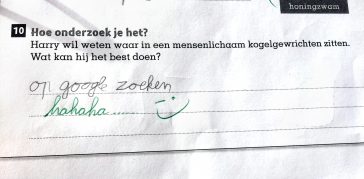 honingzwam
10 Hoe onderzoek je het?
Harry wil weten waar in een mensenlichaam kogelgewrichten zitten.
Wat kan hij het best doen?
op google zoeken
hahaha......